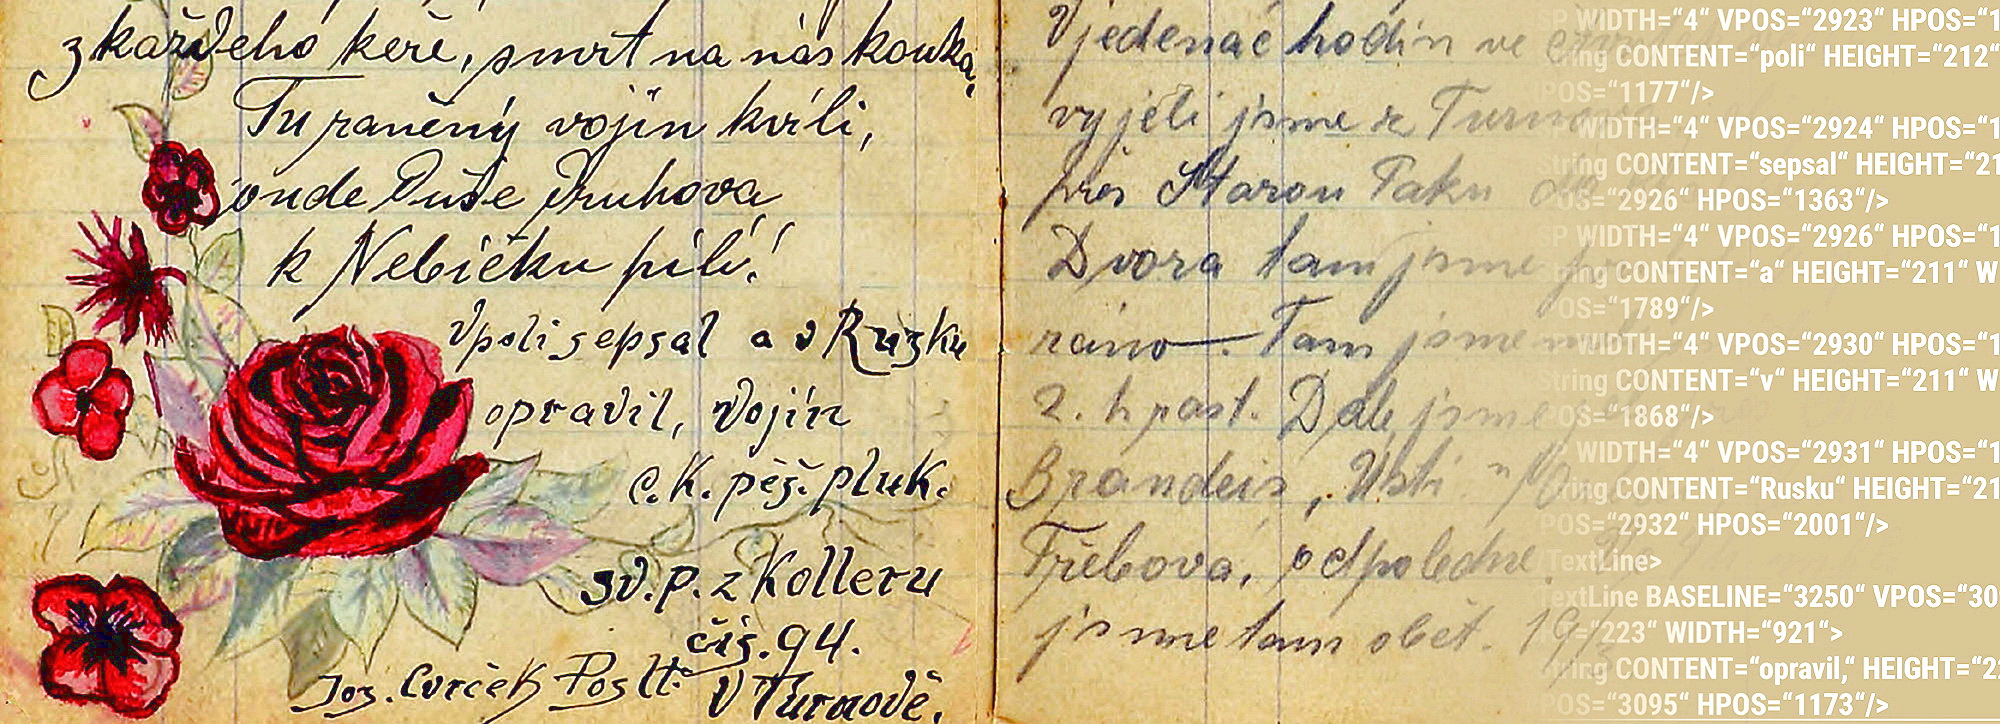 z každeho keře, smrt na nás kouka,
Tu raněný vojín kvílí,
onde Duše Druhova
k Nebíčku pílí!
V poli sepsal a v Rusku
opravil, Vojín
c. k. pěš. pluk.
sv. p. z Kolleru
čís. 94.
Jos. Cvrček
V Turnově.
V jedenáć hodin ve
vyjeli jsme z
přes Starou Paku
Dvora tam jsme
ráno. Tam jsme
2. h past. Dále jsme
Brandeis, Usti n
Třebova, odpoledne
jsme tam obět.
P WIDTH="4" VPOS="2923" HPOS="1
ring CONTENT="poli" HEIGHT="212"
POS="1177"/>
WIDTH="4" VPOS="2924" HPOS="1
tring CONTENT="sepsal" HEIGHT="21
OS="2926" HPOS="1363"/>
P WIDTH="4" VPOS="2926" HPOS="1
ing CONTENT="a" HEIGHT="211" W
POS="1789"/>
WIDTH="4" VPOS="2930" HPOS="1
tring CONTENT="v" HEIGHT="211" W
OS="1868"/>
WIDTH="4" VPOS="2931" HPOS="1
ing CONTENT="Rusku" HEIGHT="21
POS="2932" HPOS="2001"/>
TextLine>
extLine BASELINE="3250" VPOS="30
="223" WIDTH="921">
tring CONTENT="opravil," HEIGHT="22
OS="3095" HPOS="1173"/>